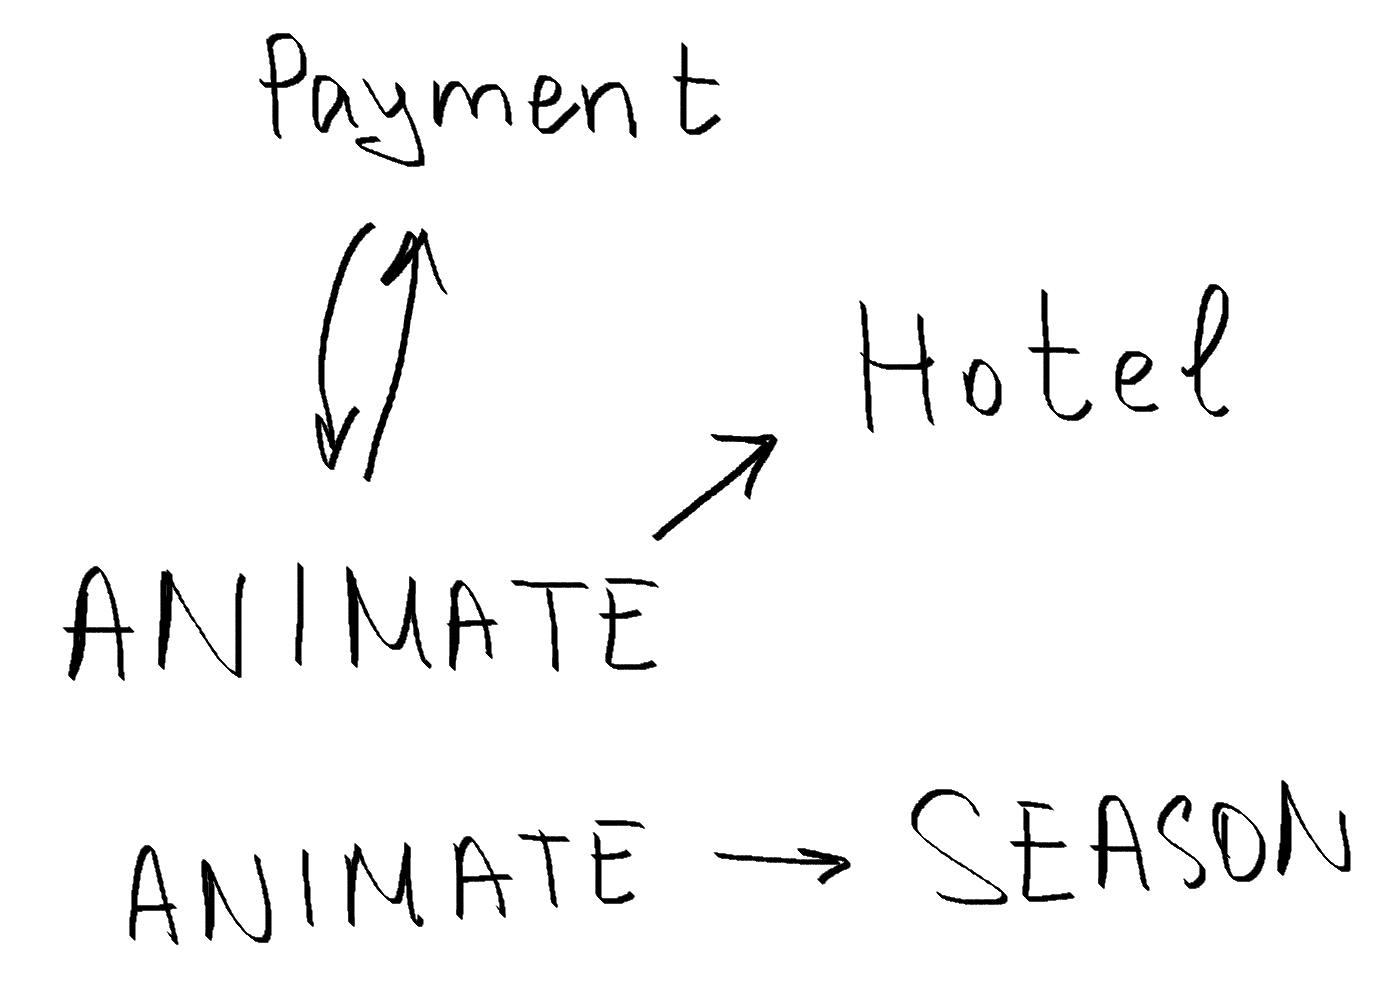 Payment
Hotel
ANIMATE
ANIMATE → SEASON